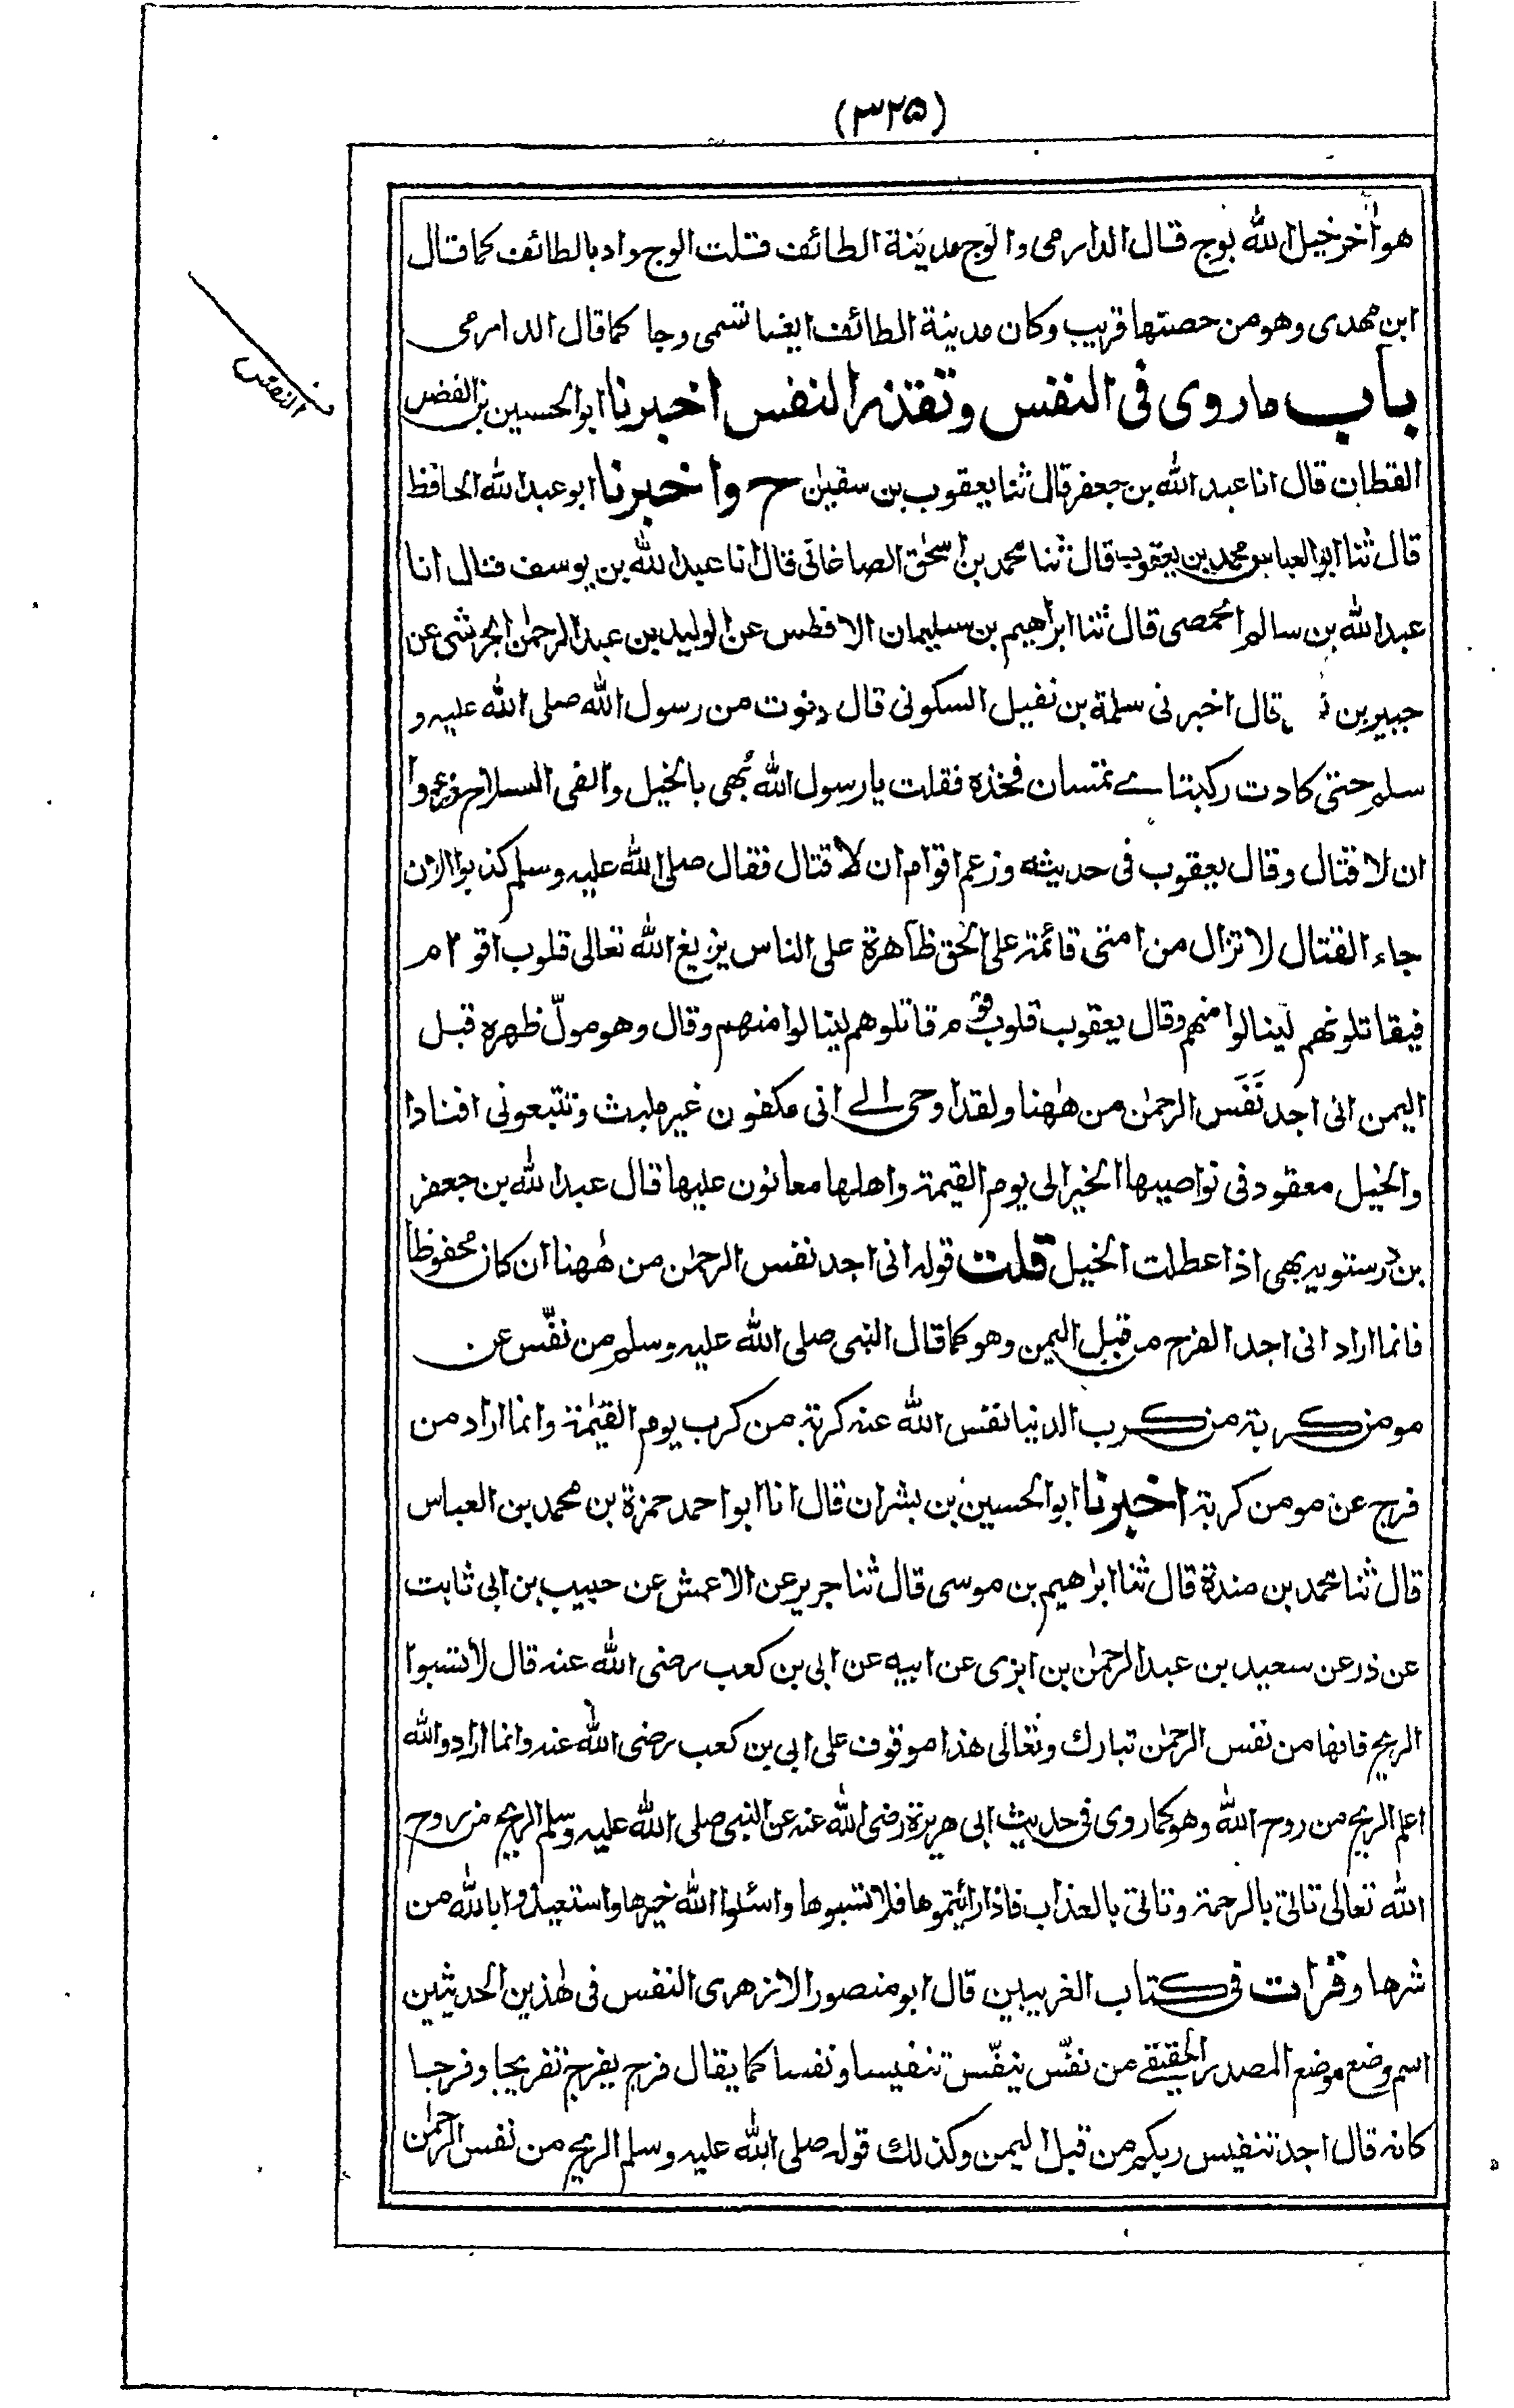 (۳۲۵)
هو آخر خيل الله بوج قال الدارمى والوج مدينة الطائف قلت الوج واد بالطائف كما قال
ابن مهدى وهو من حصنها قريب وكان مدينة الطائف ايضا تسمى وجا كما قال الدارمى
باب ما روى فى النفس وتقذر النفس اخبرنا ابو الحسين بن الفضل
النفس
القطان قال انا عبد الله بن جعفر قال ثنا يعقوب بن سفين ح واخبرنا ابو عبد الله الحافظ
قال ثنا ابو العباس محمد بن يعقوب قال ثنا محمد بن اسحٰق الصاغانى قال انا عبد الله بن يوسف قال انا
عبد الله بن سالم الحمصى قال ثنا ابراهيم بن سليمان الافطس عن الوليد بن عبد الرحمٰن الجرشى عن
جبير بن قال اخبرنى سلمة بن نفيل السكونى قال دنوت من رسول الله صلى الله عليه و
سلم حتى كادت ركبتاى تمسان فخذه فقلت يا رسول الله بُهى بالخيل والقى السلام وزعموا
ان لا قتال وقال يعقوب فى حديثه وزعم اقوام ان لا قتال فقال صلى الله عليه وسلم كذبوا الان
جاء القتال لا تزال من امتى قائمة على الحق ظاهرة على الناس يزيغ الله تعالى قلوب اقوام
فيقاتلونهم لينالوا منهم وقال يعقوب قلوب قوم قاتلوهم لينالوا منهم وقال وهو مولّ ظهره قبل
اليمن انى اجد نَفَس الرحمٰن من هٰهنا ولقد اوحى الى انى مكفون غير ملبث وتتبعونى افنادا
والخيل معقود فى نواصيها الخير الى يوم القيمة واهلها معانون عليها قال عبد الله بن جعفر
بن درستويه بهى اذا عطلت الخيل قلت قوله انى اجد نفس الرحمٰن من هٰهنا ان كان محفوظا
فانما اراد انى اجد الفرج من قبل اليمن وهو كما قال النبى صلى الله عليه وسلم من نفّس عن
مومن كربة من كرب الدنيا نفس الله عنه كربة من كرب يوم القيٰمة وانما اراد من
فرج عن مومن كربة اخبرنا ابو الحسين بن بشران قال انا ابو احمد حمزة بن محمد بن العباس
قال ثنا محمد بن مندة قال ثنا ابراهيم بن موسى قال ثنا جرير عن الاعمش عن حبيب بن ابى ثابت
عن ذر عن سعيد بن عبد الرحمٰن بن ابزى عن ابيه عن ابى بن كعب رضى الله عنه قال لا تسبوا
الريح فانها من نفس الرحمٰن تبارك وتعالى هذا موقوف على ابى بن كعب رضى الله عنه وانما اراد والله
اعلم الريح من روح الله وهو كما روى فى حديث ابى هريرة رضى الله عنه عن النبى صلى الله عليه وسلم الريح من روح
الله تعالى تاتى بالرحمة وتاتى بالعذاب فاذا رائيتموها فلا تسبوها واسئلوا الله خيرها واستعيذوا بالله من
شرها وقرات فى كتاب الغريبين قال ابو منصور الازهرى النفس فى هٰذين الحديثين
اسم وضع موضع المصدر الحقيقى من نفّس ينفّس تنفيسا ونفسا كما يقال فرج يفرج تفريجا وفرجا
كانه قال اجد تنفيس ربكم من قبل اليمن وكذلك قوله صلى الله عليه وسلم الريح من نفس الرحمٰن